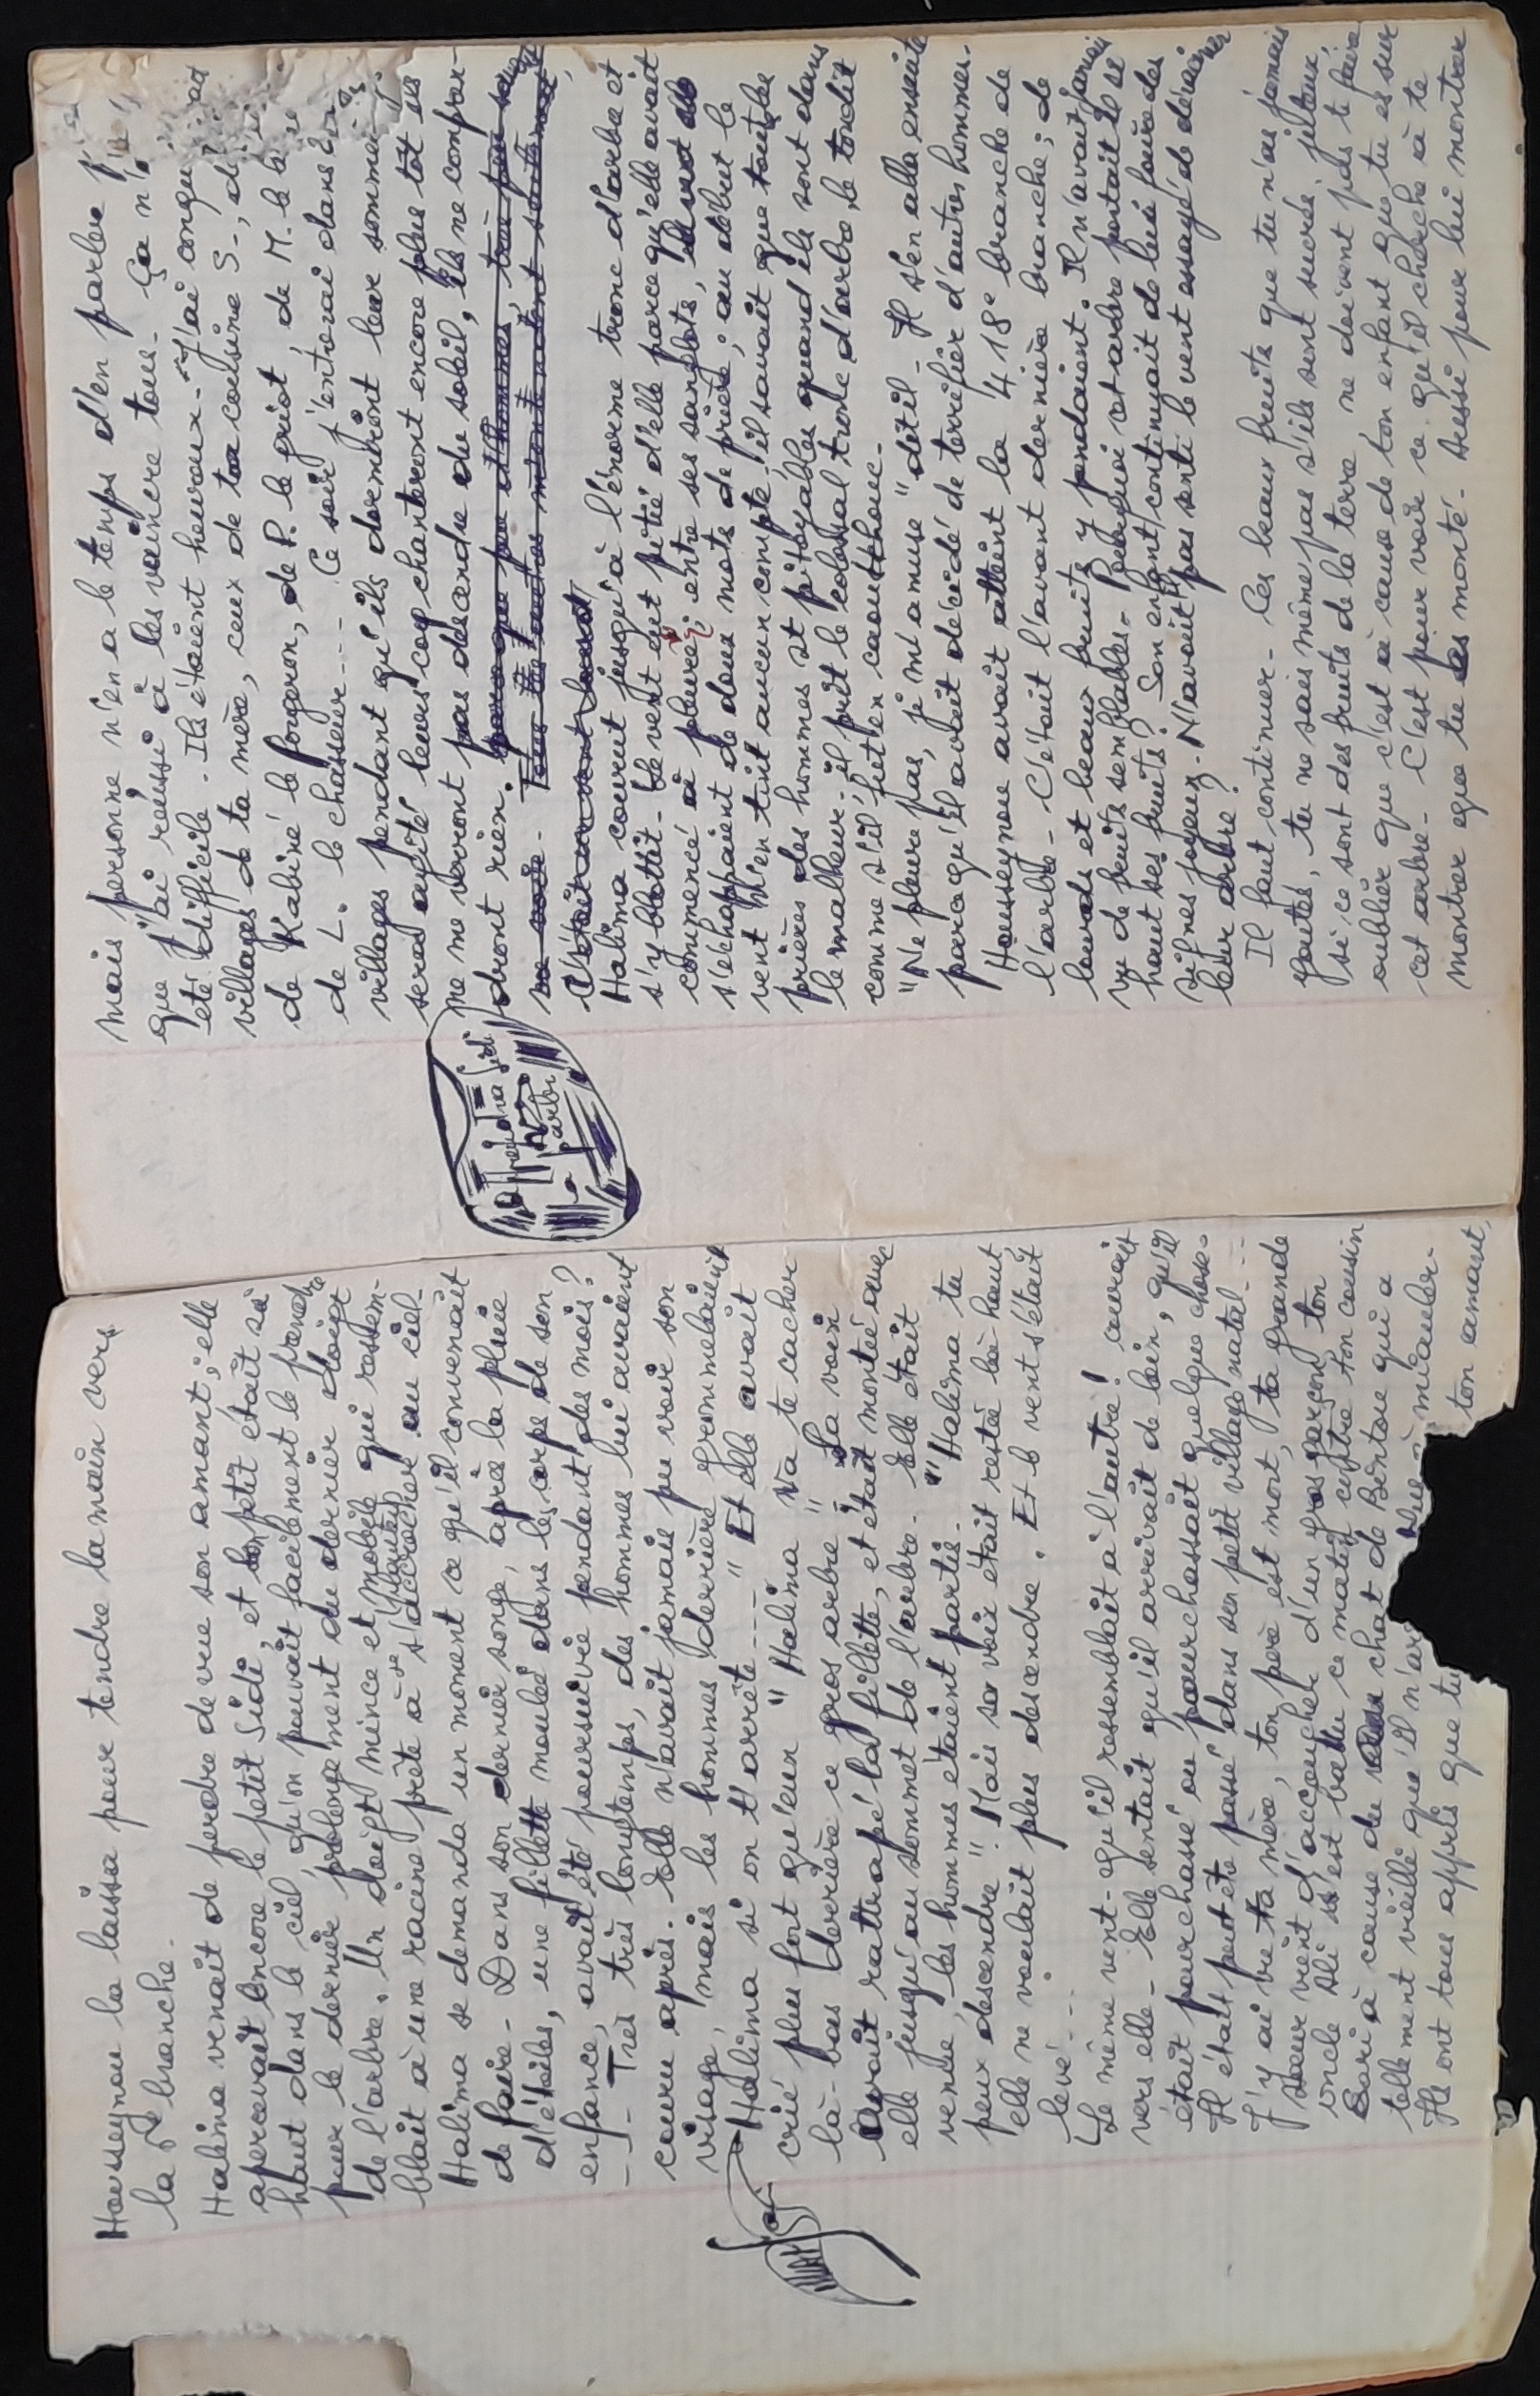 Housseynou la laissa pour tendre la main vers
la branche.
Halima venait de perdre de vue son amant; elle
apercevait encore le petit Sidi, et petit était si
haut dans le ciel, qu'on pouvait facilement le prendre
pour le dernier prolongement du dernier doigt
de l'arbre. Un doigt mince et mobile qui ressem-
blait à une racine prête à s'accrocher au ciel.
Halima se demanda un moment ce qu'il convenait
de faire. Dans son dernier songe, après la pluie
d'étoiles, une fillette moulée dans les corps de son
enfance, avait été poursuivie pendant des mois?
--- Très très longtemps, des hommes lui avaient
couru après. Elle n'avait jamais pu voir son
visage, mais les hommes derrière grommelaient
"Halima si on t'arrête ---" Et elle avait
crié plus fort qu'eux "Halima va te cacher
là-bas derrière ce gros arbre". La voix
avait rattrapé la fillette, et était montée avec
elle jusqu'au sommet de l'arbre. Elle était
venue, les hommes étaient partis. "Halima tu
peux descendre"! Mais sa voix était restée là haut
elle ne voulait plus descendre. Et le vent s'était
levé ---
Le même vent. qu'il ressemblait à l'autre! courait
vers elle. Elle sentait qu'il arrivait de loin, qu'il
était pourchassé ou pourchassait quelque chose.
Il était peut-être passé dans son petit village natal ---
J'y ai vu ta mère, ton père est mort, ta grande
soeur vient d'accoucher d'un gros garçon, ton
oncle Ali s'est battu ce matin contre ton cousin
Bari à cause du chat de Bintou qui a
tellement vieilli qu'il n'ar miauler.
Ils ont tous appris que tu ton amant,
mais personne n'en a le temps d'en parler
que j'ai réussi à les vaincre tous. Ça n'a
été difficile. Ils étaient heureux. J'ai conquis
villages de ta mère, ceux de ta cousine S.,
de Kabiné le forgeron, de P. le griot, de M. le
de L. le chasseur --- Ce soir j'entrerai dans
villages pendant qu'ils dormiront leur sommeil
serai agité leurs coq chanteront encore plus tôt ils
ne me verront pas descendre du soleil, ils ne compren-
dront rien.
Sidi
l'arbre
Halima courut jusqu'à l'énorme tronc d'arbre et
s'y blottit. Le vent eut pitié d'elle parce qu'elle avait
commencé à pleurer; entre ses sanglots,
s'échappaient de doux mots de prière; au début le
vent n'en tint aucun compte. il savait que toutes les
prières des hommes st pitoyables quand ils sont dans
le malheur. il prit le colossal tronc d'arbre, le tordit
comme s'il fut en caoutchouc.
"Ne pleure pas, je m'amuse" dit-il. Il s'en alla ensuite
parce qu'il avait décidé de terrifier d'autres hommes.
Housseynou avait atteint la 418e branche de
l'arbre. C'était l'avant dernière branche; de
lourds et beaux fruits y pendaient. Il n'avait jamais
vu de fruits semblables. Pourquoi cet arbre portait il si
haut ses fruits? Son enfant continuait de lui faire des
signes joyeux. N'avait il pas senti le vent essayé de déraciner
leur arbre?
Il faut continuer. Ces beaux fruits que tu n'as jamais
goutés, tu ne sais même pas s'ils sont sucrés, juteux
si ce sont des fruits de la terre ne doivent pas te faire
oublier que c'est à cause de ton enfant que tu es sur
cet arbre. C'est pour voir ce qu'il cherche à te
montrer que tu es monté. Aussi pour lui montrer